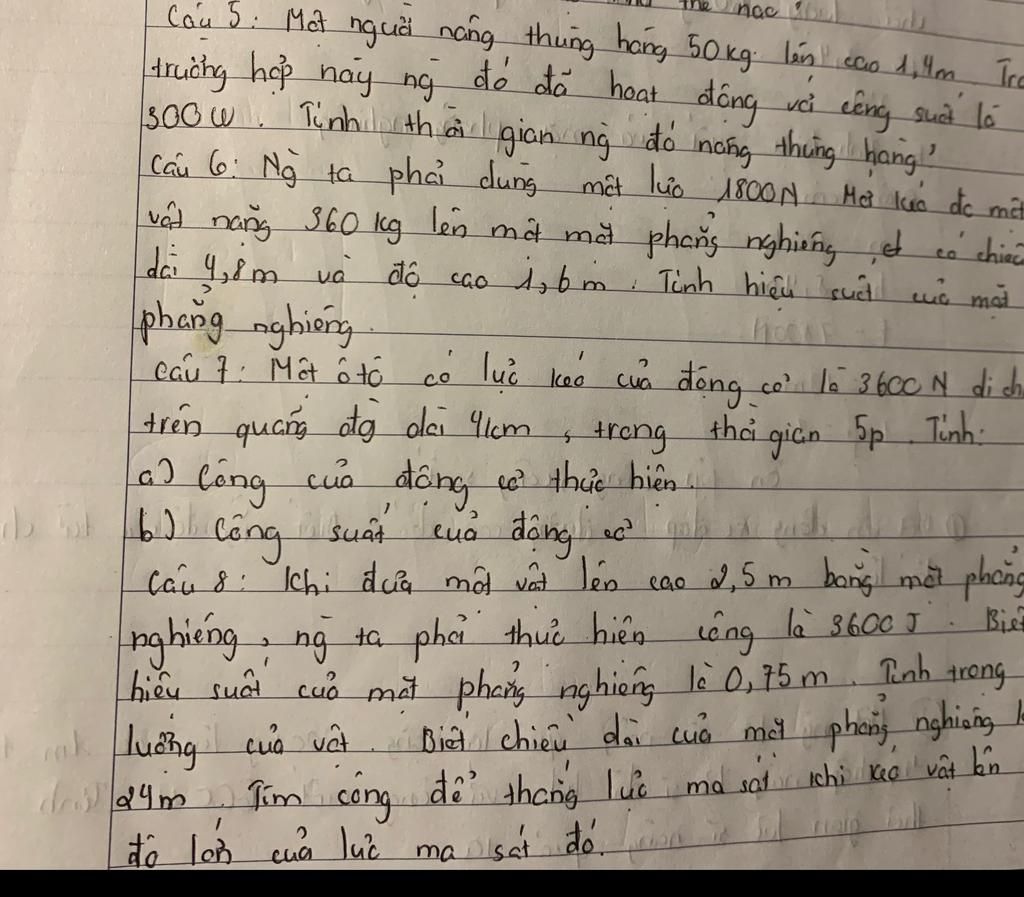 thế nào?
Câu 5: Một người nâng thùng hàng 50kg lên cao 1,4m Tro
trường hợp này ng đó đã hoạt động với công suất là
300W. Tính thời gian ng đó nâng thùng hàng?
Câu 6: Ng ta phải dùng một lực 1800N Mới kéo đc một
vật nặng 360kg lên một mặt phẳng nghiêng, có chiều
dài 4,8m và độ cao 1,6m. Tính hiệu suất của mặt
phẳng nghiêng.
Câu 7: Một ôtô có lực kéo của động cơ là 3600N dịch
trên quãng đg dài 4km, trong thời gian 5p. Tính:
a) Công của động cơ thực hiện.
b) Công suất của động cơ
Câu 8: Khi đưa một vật lên cao 2,5m bằng mặt phẳng
nghiêng, ng ta phải thực hiện công là 3600J. Biết
hiệu suất của mặt phẳng nghiêng là 0,75m. Tính trọng
lượng của vật. Biết chiều dài của mặt phẳng nghiêng l
24m. Tìm công để thắng lực ma sát khi kéo vật lên
độ lớn của lực ma sát đó.